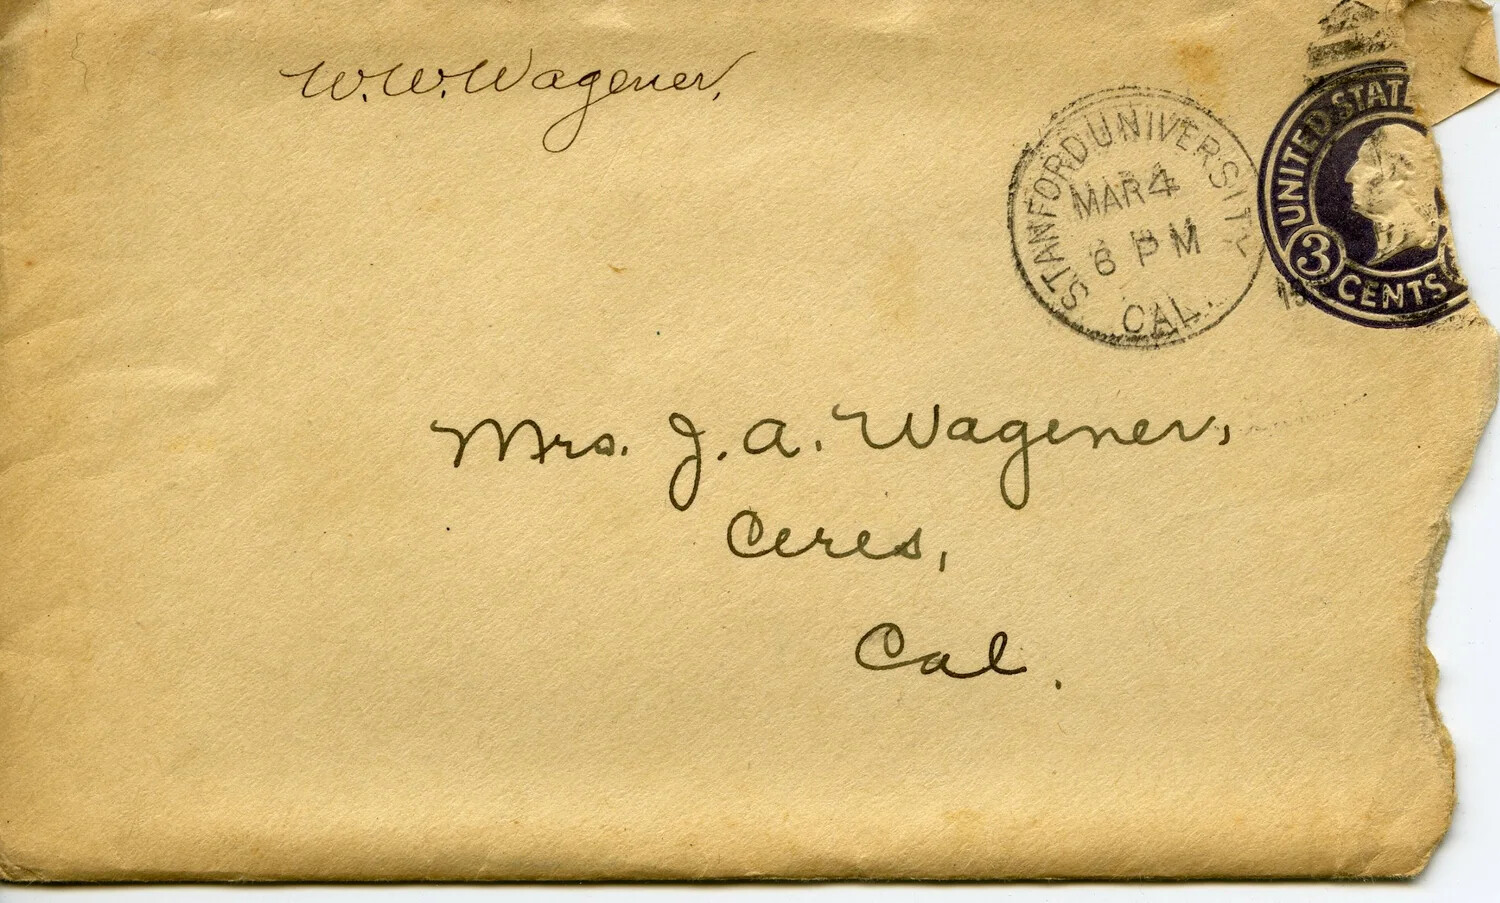 W. W. Wagener,
STANFORD UNIVERSITY
MAR 4
6 PM
CAL.
UNITED STATE
3
CENTS
Mrs. J. A. Wagener,
Ceres,
Cal.